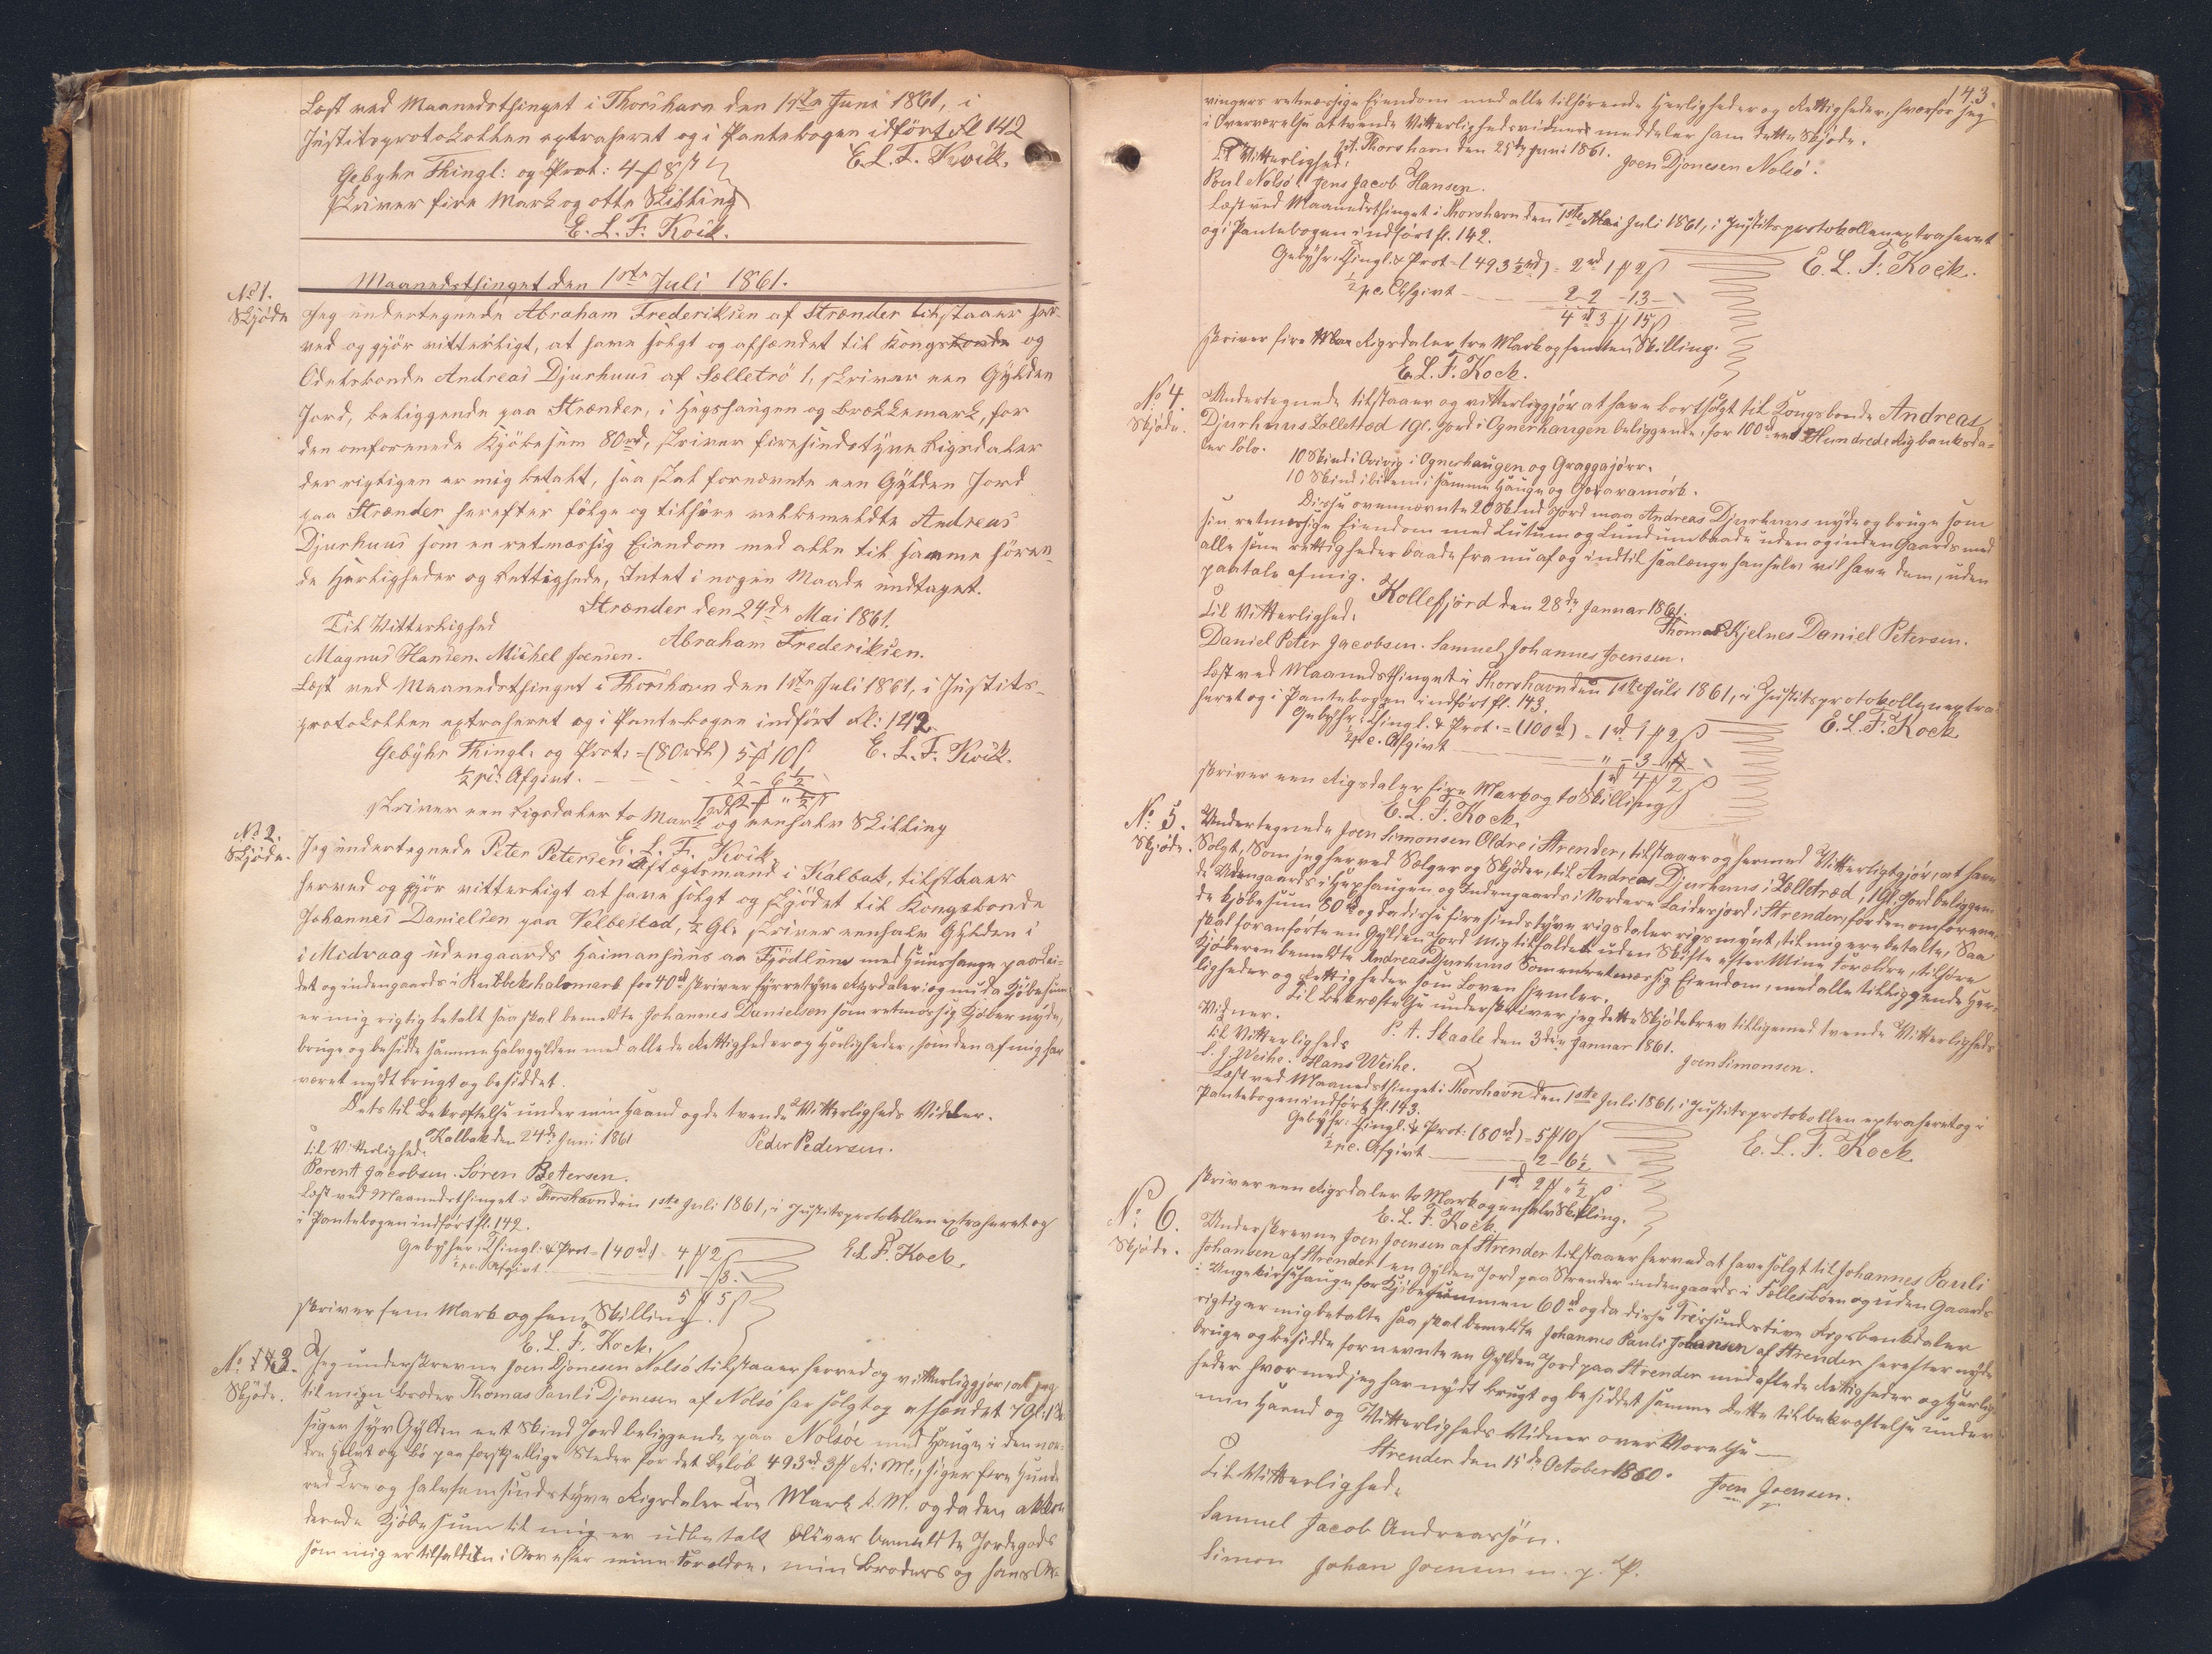 Læst ved Maanedsthinget i Thorshavn den 1ste Juni 1861, i
Justitsprotokollen extraheret og i Pantebogen idført fl 142
E. L. F. Kock.
Gebyhr Thingl: og Prot: 4 # 8 ß
skriver fire Mark og otte Skilling
E. L. F. Kock.
Maanedsthinget den 1ste Juli 1861.
No 1.
Skjöde
Jeg undertegnede Abraham Frederiksen af Strænder tilstaaer her-
ved og gjör vitterligt, at have solgt og afhændet til Kongsbonde og
Odelsbonde Andreas Djurhuus af Sælletrö 1, skriver een Gylden
Jord, beliggende paa Strænder, i Hegshaugen og Brækkemark, for
den omforenede Kjöbesum 80rd, skriver firesindstyve Rigsdaler
der rigtigen er mig betalt, saa skal fornævnte een Gylden Jord
paa Strænder herefter fölge og tilhøre velbemeldte Andreas
Djurhuus som en retmæssig Eiendom med alle til samme hören-
de Herligheder og Rettighede, Intet i nogen Maade undtaget.
Strænder den 24de Mai 1861.
Til Vitterlighed
Abraham Frederiksen.
Magnus Hansen. Michel Joensen.
Læst ved Maanedsthinget i Thorshavn den 1ste Juli 1861, i Justits-
protokollen extraheret og i Pantebogen indført fl: 142.
Gebyhr Thingl. og Prot: = (80rdl) 5 # 10 ß
E. L. F. Kock.
½ pc. Afgivt. - - - 2 - 6½
1rd 2 # " ½ ß
skriver een Rigsdaler to Mark og een halv Skilling
E. L. F. Kock.
No 2.
Skjöde.
Jeg undertegnede Peter Petersen Aftægtsmand i Kalbak, tilstaaer
herved og gjör vitterligt at have solgt og skjödet til Kongsbonde
Johannes Danielsen paa Velbestad, ½ Gl. skriver eenhalv Gylden i
i Midvaag udengaards Heimanhuus aa Fjödlum med Huushauge paa
det og indengaards i for 40rd skriver fyrretyve Rigsdaler; og nu da Kjöbesum
er mig rigtig betalt saa skal bemeldte Johannes Danielsen som retmæssig Kjøber nyde,
bruge og besidde samme Halvgylden med alle de Rettigheder og Herligheder, som den af mig har
været nydt brugt og besiddet.
Dets til Bekræftelse under min Haand og de tvende Vitterligheds Vidner.
Kalbak den 24de Juni 1861
Til Vitterlighed.
Peder Pedersen.
Berent Jacobsen. Søren Petersen.
Læst ved Maanedsthinget i Thorshavn den 1ste Juli 1861, i Justitsprotokollen extraheret og
i Pantebogen indført fl. 142.
Gebyhr: Thingl: & Prot = (40rd) - 4 # 2 ß
E. L. F. Kock.
½ pc. Afgivt. 1 - 3.
5 # 5 ß
skriver fem Mark og fem Skilling.
E. L. F. Kock.
No 3.
Skjöde.
Jeg underskrevne Joen Djonesen Nolsö tilstaaer herved og vitterliggjør, at jeg
til mign Broder Thomas Pauli Djonesen af Nolsö har solgt og afhændet 7 Gl: 1 Sk
siger syv Gylden eet Skind Jord beliggende paa Nolsöe med Hauge i den nor-
dre Halvt og Bö paa forskjellige Steder for det Beløb 493rd 3 # R: M., siger fire Hunde
red Tre og halvfemsindstyve Rigsdaler Tre Mark R. M. og da den akkor-
derede Kjöbesum til mig er udbetalt bliver bemeldte Jordegods
som mig er tilfalden i Arv efter mine Forældre, min Broders og hans Ar-
143.
vingers retmæssige Eiendom med alle tilhørende Herligheder og Rettigheder, hvorfor jeg
i Overværelse af tvende Vitterlighedsvidner meddeler ham dette Skjøde.
pt. Thorshavn den 25de Juni 1861.
Til Vitterlighed.
Joen Djonesen Nolsö.
Poul Nolsö. Jens Jacob Hansen.
Læst ved Maanedsthinget i Thorshavn den 1ste Mai Juli 1861, i Justitsprotokollen extraheret
og i Pantebogen indført fl. 142.
E. L. F. Kock.
Gebyhr: Thingl. & Prot = (493½rd) = 2rd 1 # 2 ß
½ pc. Afgivt - - 2 - 2 - 13 -
4rd 3 # 15 ß
skriver fire Mar Rigsdaler tre Mark og femten Skilling.
E. L. F. Kock.
No 4.
Skjøde.
Undertegnede tilstaaer og vitterliggjør at have bortsolgt til Kongsbonde Andreas
Djurhuus Zelletrød 1 Gl. Jord i Ognerhaugen beliggende, for 100rd eet Hundrede Rigbanksda-
ler Sölv.
10 Skind i Ovivig i Ogneshaugen og Graggajörr.
10 Skind ibidem i samme Hauge og Gotaramörk.
Disse ovennævnte 20 Skind Jord maa Andreas Djurhuus nyde og bruge som
sin retmæssige Eiendom med Lutum og Lundum baade uden og inden Gaards med
alle sine rettigheder baade fra nu af og indtil saalænge han selv vil have dem, uden
paatale af mig.
Kollefjord den 28de Januar 1861.
Til Vitterlighed.
Thomas Kjelnes Daniel Petersen.
Daniel Peter Jacobsen. Samuel Johannes Joensen.
Læst ved Maanedsthinget i Thorshavn den 1ste Juli 1861, i Justitsprotokollen extra-
heret og i Pantebogen indført fl. 143.
E. L. F. Kock
Gebyhr: Thingl. & Prot. = (100rd) = 1rd 1 # 2 ß
½ pc. Afgivt " - 3 - "
1rd 4 # 2 ß
skriver een Rigsdaler fire Mark og to Skilling
E. L. F. Kock.
No 5.
Skjøde.
Undertegnede Joen Simonsen Oldre i Strender, tilstaaer og hermed Vitterligtgjör, at have
Solgt, Som jeg herved Sælger og Skjöder, til Andreas Djurhuus i Zælletræd, 1 Gl. Jord beliggen-
de Udengaards i Hegshaugen og Indengaards i Nordere Leiderjord i Strender, for den omforene-
de kjöbesum 80rd og da disse firesindstyve rigsdaler rigsmynt, til mig ere betalte, Saa
skal foranførte en Gylden Jord mig tilfaldet uden Skifte efter Mine Forældre, tilhöre
Kjøberen bemeldte Andreas Djurhuus Som en retmæssig Eiendom, med alle tilliggende Her-
ligheder og Rettigheder som Loven hjemler.
Til Bekræftelse underskriver jeg dette Skjødebrev tilligemed tvende Vitterligheds
Vidner.
P. t. Skaale den 3die Januar 1861.
Til Vitterligheds
Joen Simonsen.
S. J. Weihe. Hans Weihe.
Læst ved Maanedsthinget i Thorshavn den 1ste Juli 1861, i Justitsprotokollen extraheret og i
Pantebogen indført fl. 143.
E. L. F. Kock
Gebyhr: Thingl. & Prot: (80rd) = 5 # 10 ß
½ pc. Afgivt - 2 - 6½
1rd 2 # " ½ ß
skriver een Rigsdaler to Mark og eenhalv Skilling.
E. L. F. Kock.
No 6.
Skjøde.
Underskrevne Joen Joensen af Strender tilstaaer herved at have solgt til Johannes Pauli
Johansen af Strender 1 en Gylden Jord paa Strender indengaards i Fælles börn og uden Gaards
i Ungekirsehauge for Kjöbesummen 60rd og da disse Tressindstive Rigsbankdaler
rigtig er mig betalte saa skal bemeldte Johannes Pauli Johansen af Strender herefter nyde
bruge og besidde fornevnte en Gylden Jord paa Strender med aflede Rettigheder og Herlig-
heder hvormed jeg har nydt brugt og besiddet samme. Dette til bekræftelse under
min Haand og Vitterligheds Vidner over Værelse —
Strender den 15de October 1860.
Til Vitterlighed.
Joen Joensen.
Samuel Jacob Andreasön.
Simon Johan Joensen m. p. P.